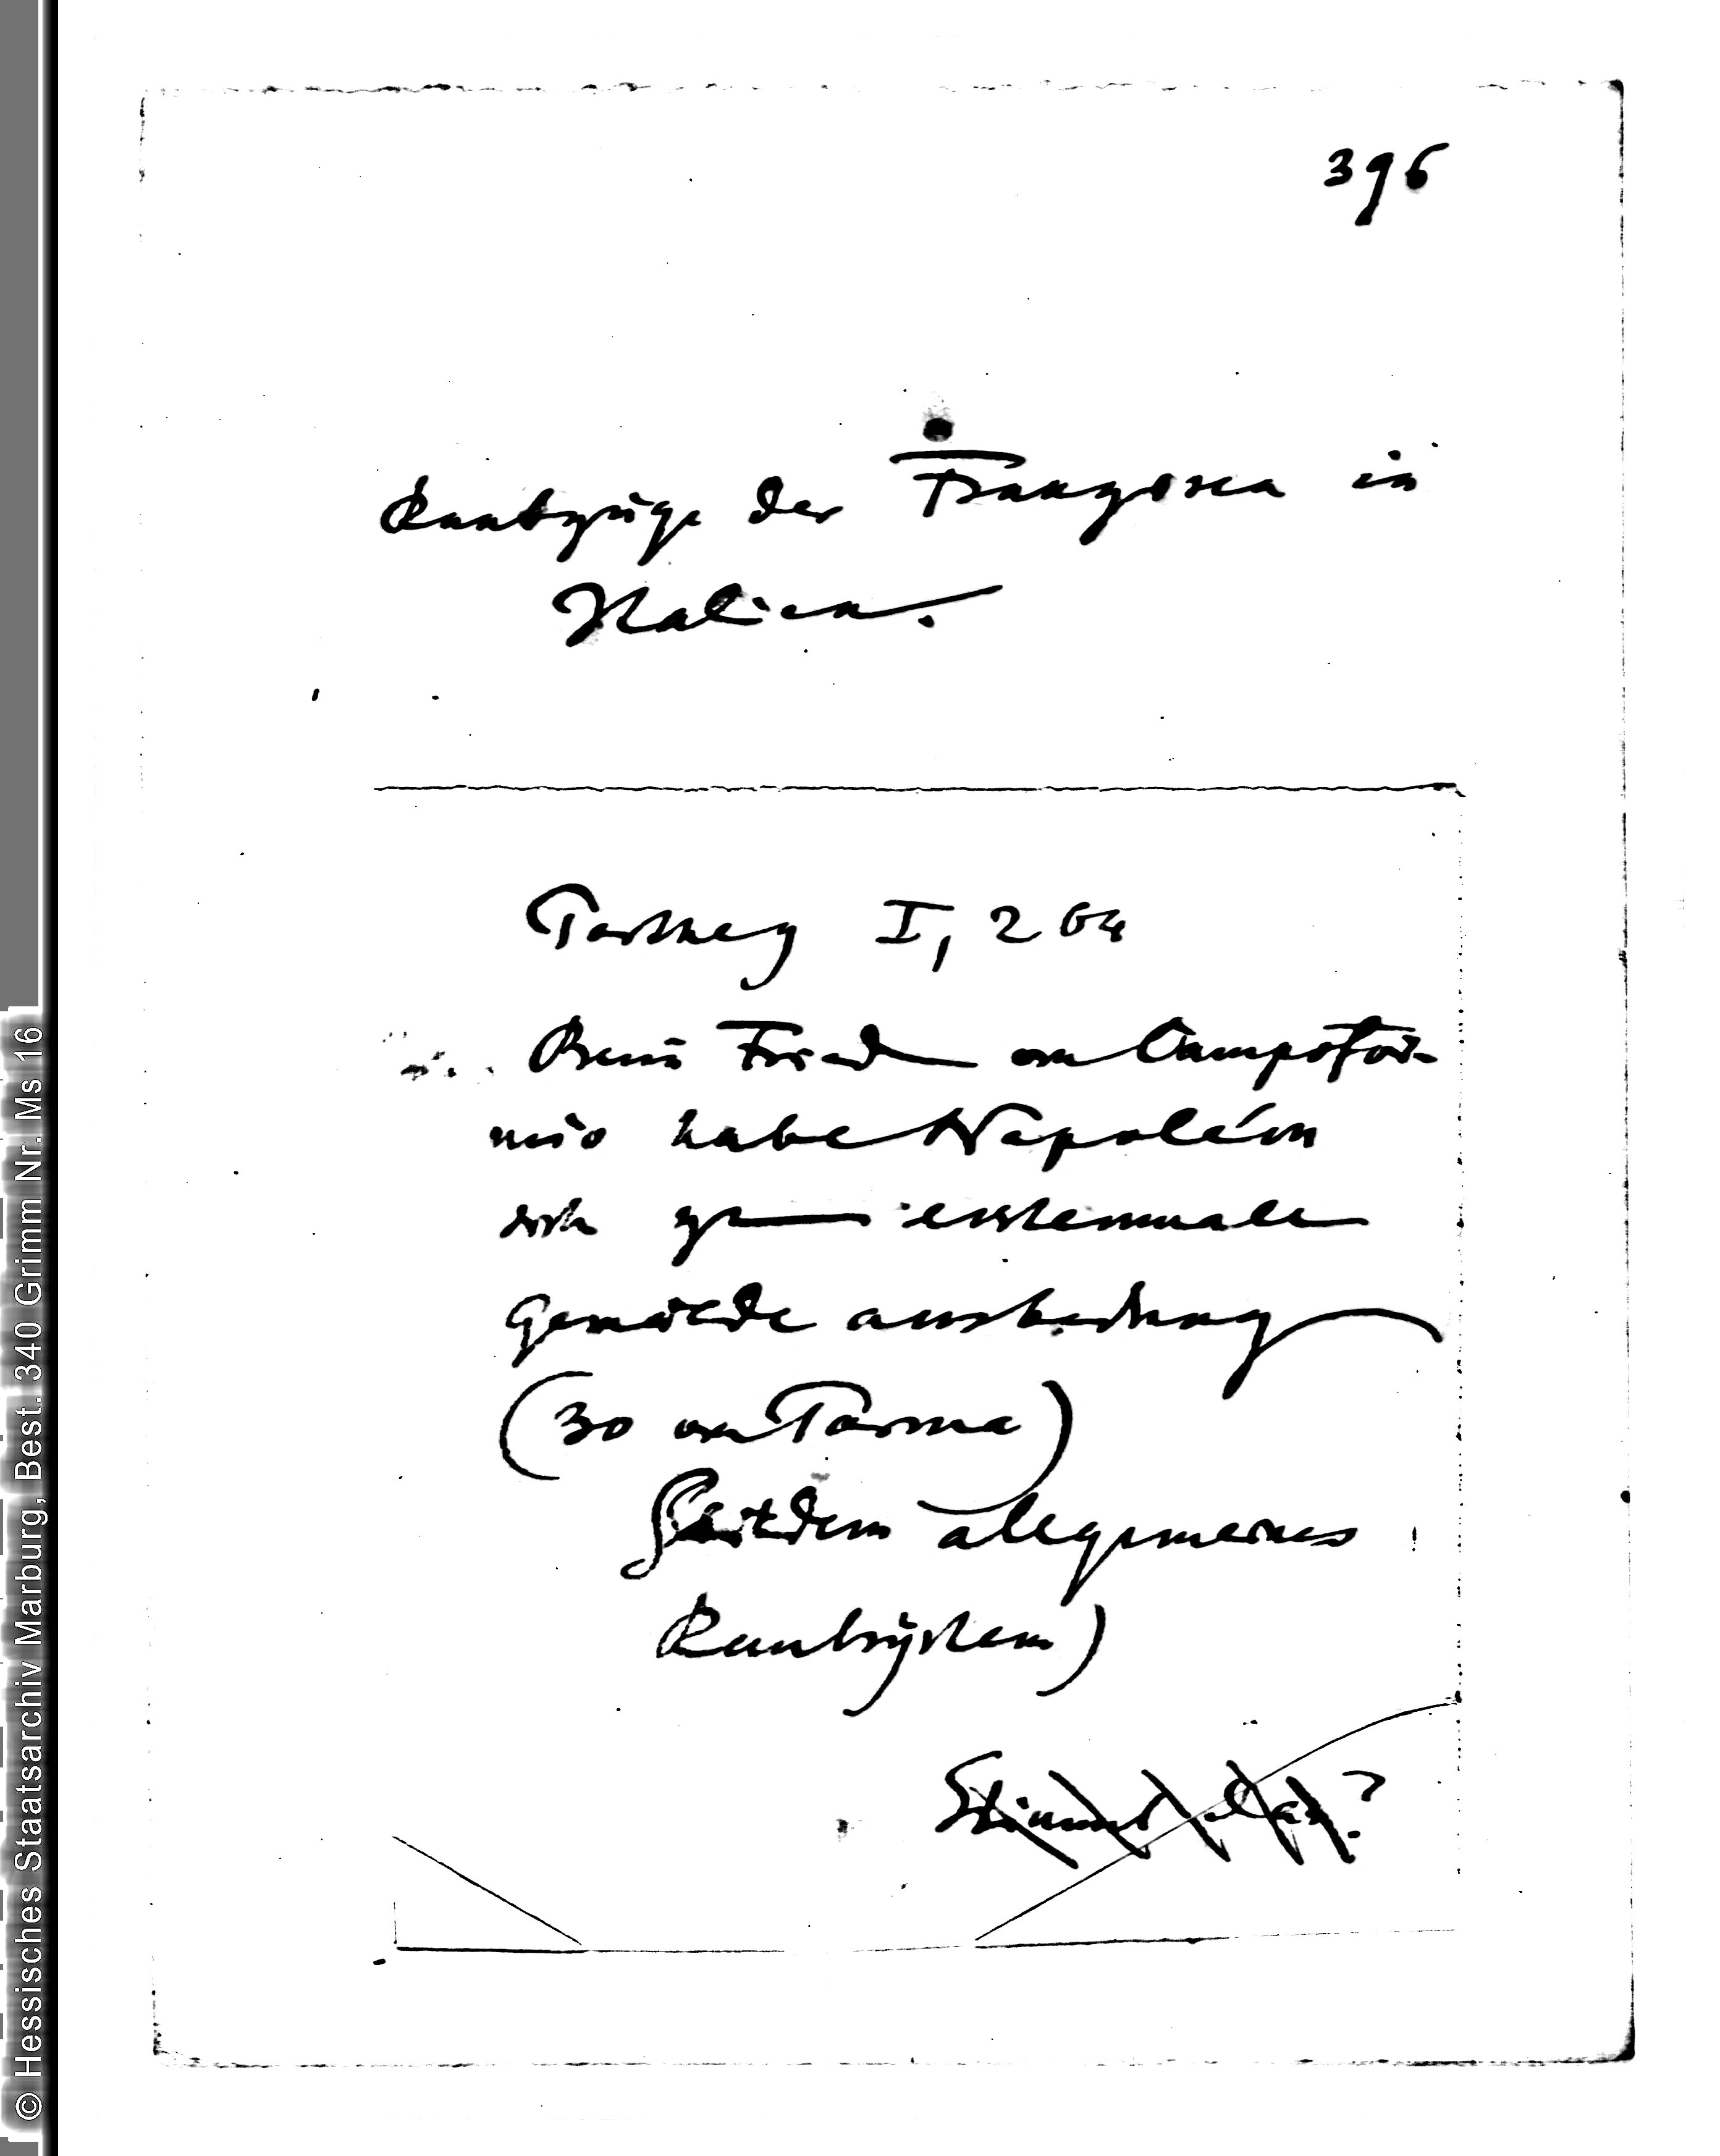 396
Raubzüge der Franzosen in
Italien.
Parthey I, 264
Beim Fried von Campofor-
mio habe Napoléon
sich zum erstenmale
Gemälde ausbedung
(30 von Parma)
Seitdem allgemeines
Raubsystem)
?
© Hessisches Staatsarchiv Marburg, Best. 340 Grimm Nr. Ms 16